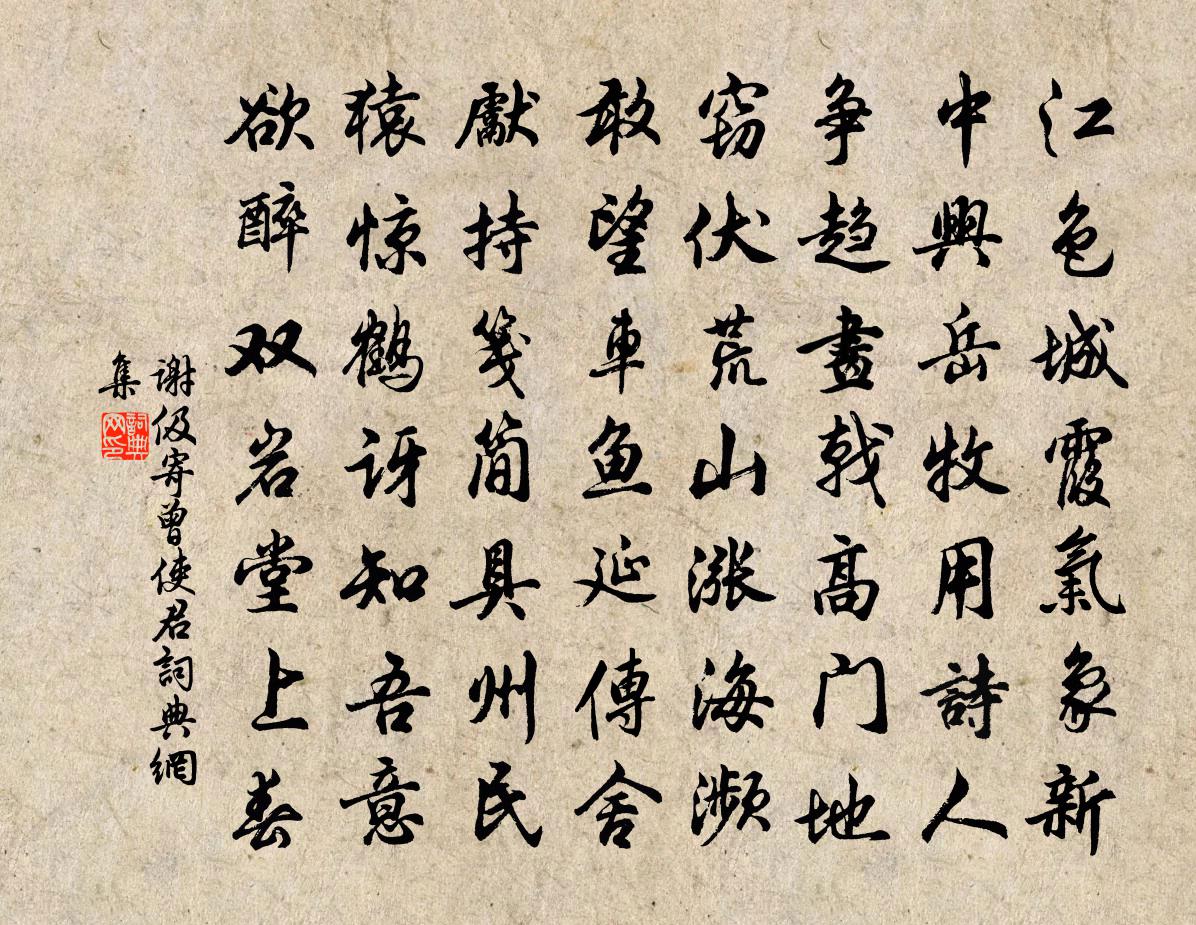 江色城霞氣象新
中興岳牧用詩人
争趋畫戟高门地
窃伏荒山漲海瀕
敢望車鱼延傳舍
獻持笺简具州民
猿惊鶴讶知吾意
欲醉双岩堂上春
謝伋寄曾使君詞典網
集
詞典网印